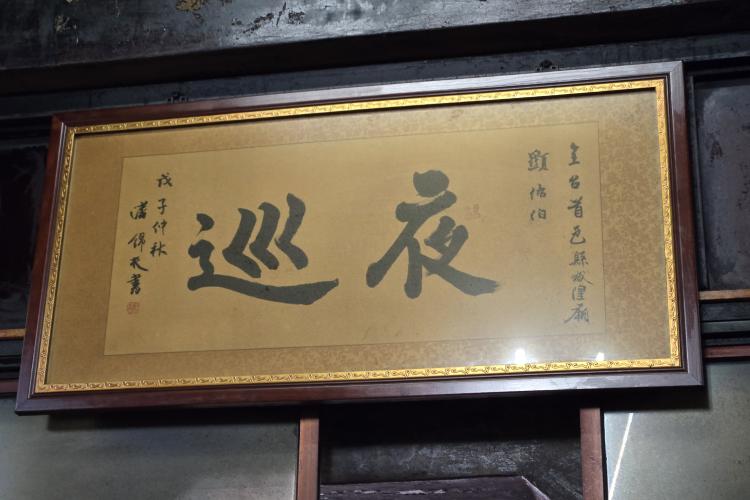 全台首邑縣城隍廟
顯佑伯
夜巡
戊子仲秋
潘錦天書